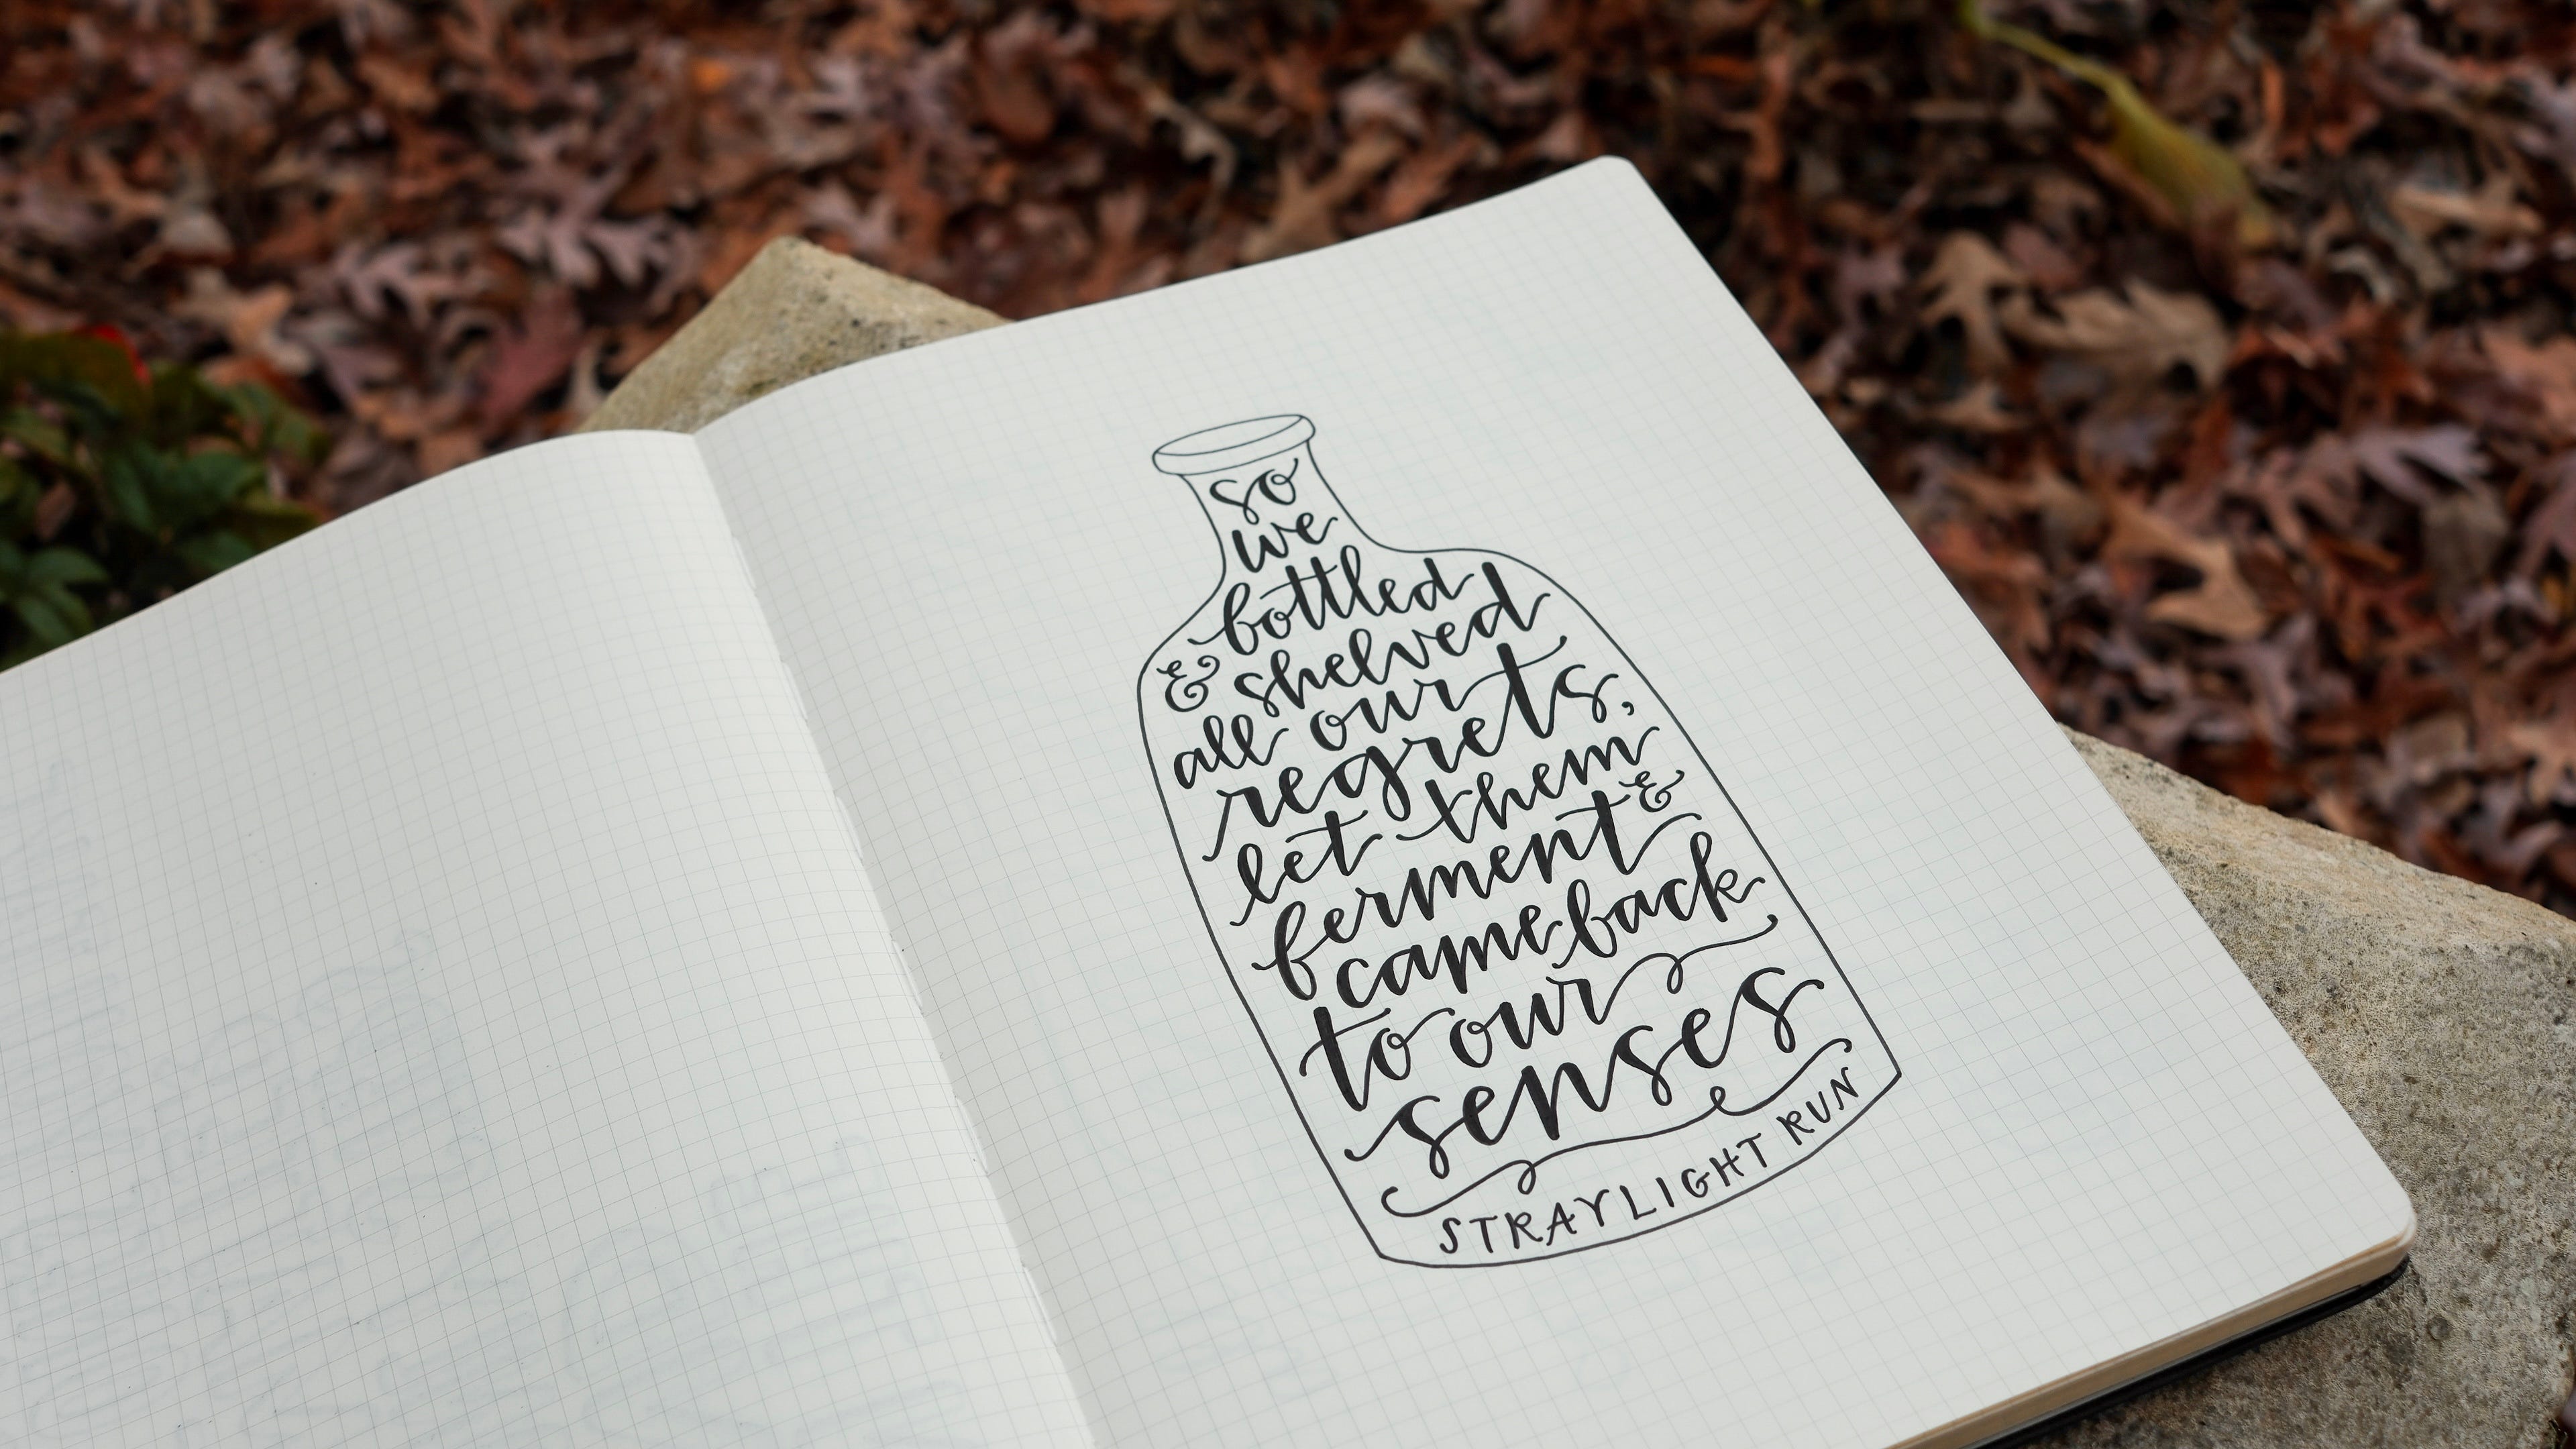 so
we
bottled
& shelved
all our
regrets,
let them
ferment &
came back
to our
senses
STRAYLIGHT RUN